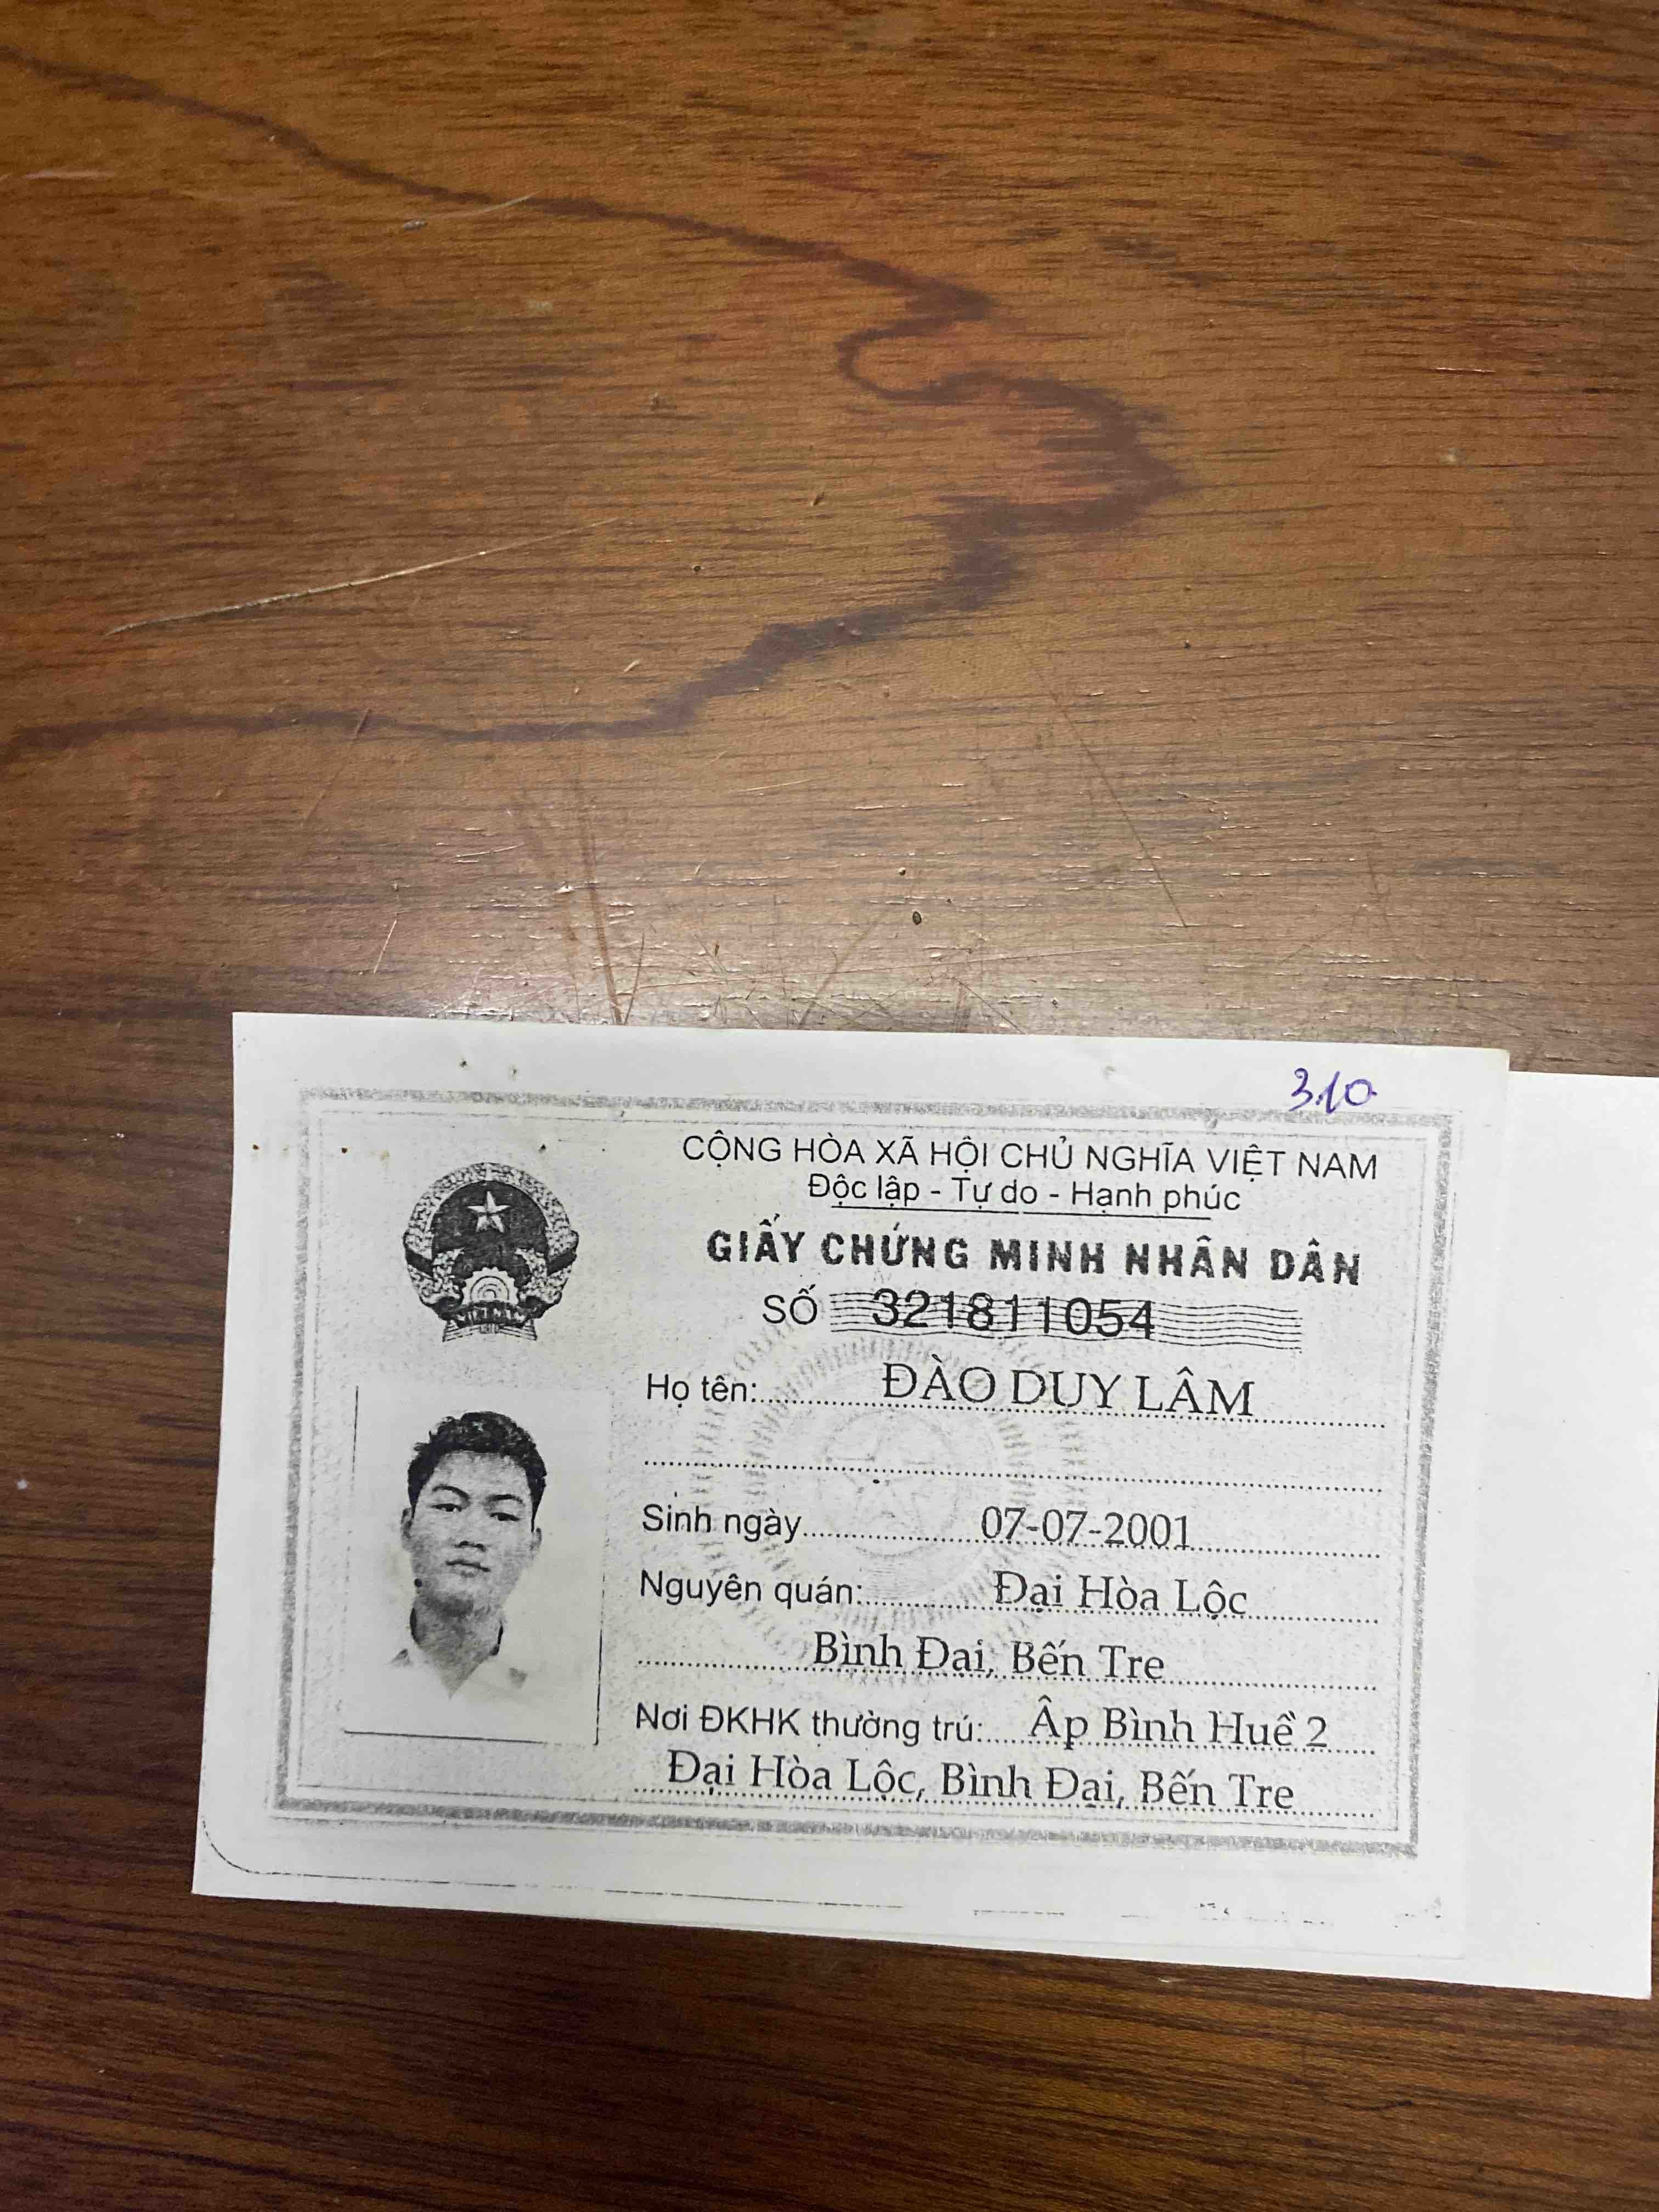 3.10
CỘNG HÒA XÃ HỘI CHỦ NGHĨA VIỆT NAM
Độc lập - Tự do - Hạnh phúc
GIẤY CHỨNG MINH NHÂN DÂN
SỐ 321811054
Họ tên: ĐÀO DUY LÂM
Sinh ngày 07-07-2001
Nguyên quán: Đại Hòa Lộc
Bình Đại, Bến Tre
Nơi ĐKHK thường trú: Ấp Bình Huề 2
Đại Hòa Lộc, Bình Đại, Bến Tre